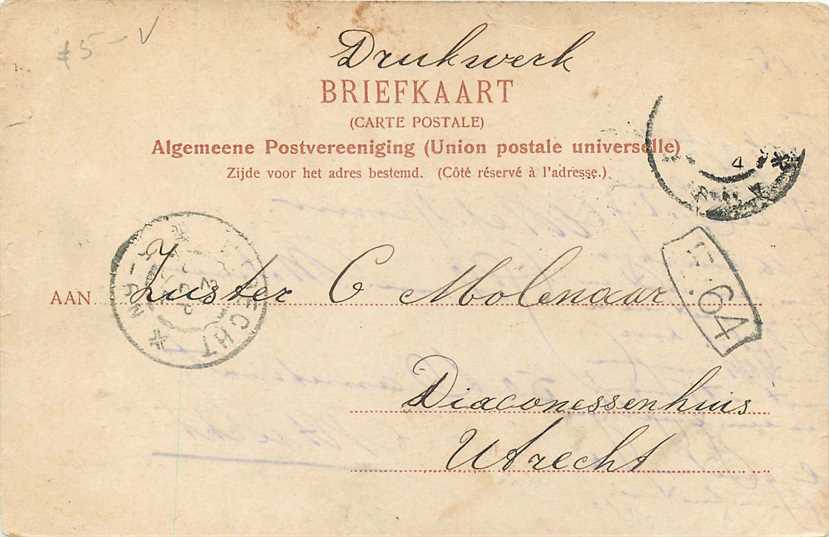 Drukwerk
BRIEFKAART
(CARTE POSTALE)
Algemeene Postvereeniging (Union postale universelle)
Zijde voor het adres bestemd. (Côté réservé à l'adresse.)
4
AAN Zuster C Molenaar
64
Diaconessenhuis
Utrecht